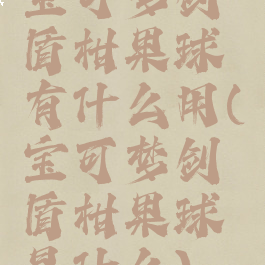 宝可梦剑
盾柑果球
有什么用(
宝可梦剑
盾柑果球
是什么)